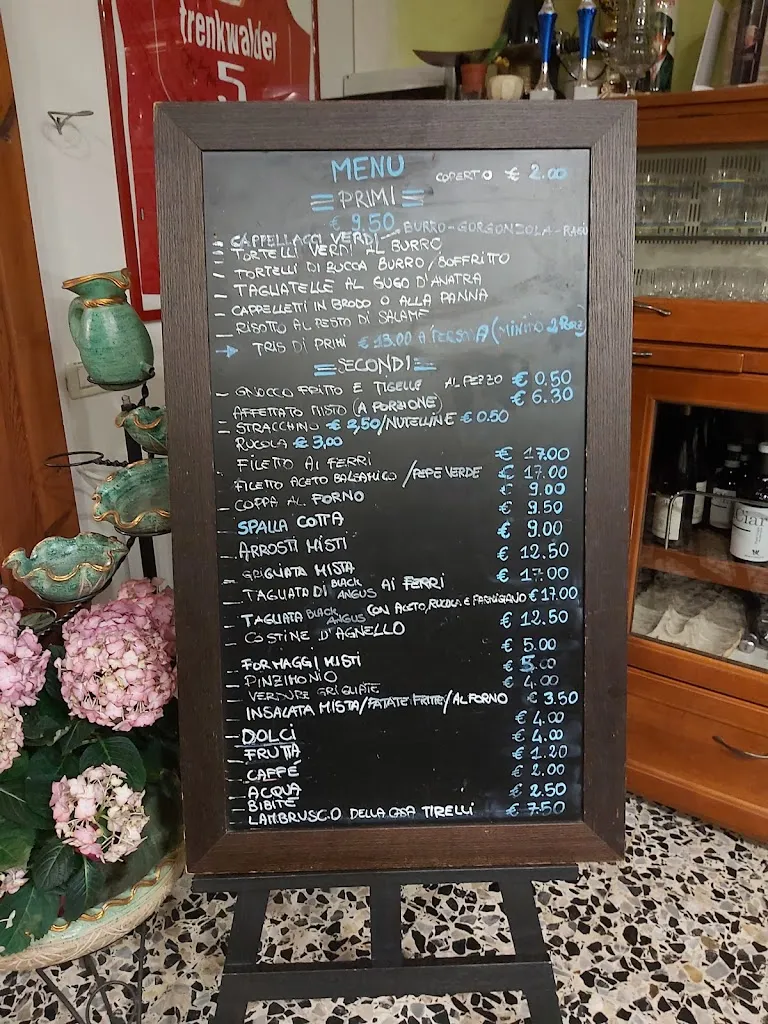 trenkwalder
5
MENU
COPERTO € 2.00
PRIMI
€ 9.50
- CAPPELLACCI VERDI - BURRO-GORGONZOLA-RAGÙ
- TORTELLI VERDI AL BURRO
- TORTELLI DI ZUCCA BURRO/SOFFRITTO
- TAGLIATELLE AL SUGO D'ANATRA
- CAPPELLETTI IN BRODO O ALLA PANNA
- RISOTTO AL PESTO DI SALAME
→ TRIS DI PRIMI € 13.00 A PERSONA (MINIMO 2 PORZ)
SECONDI
- GNOCCO FRITTO E TIGELLE AL PEZZO € 0,50
AFFETTATO MISTO (A PORZIONE) € 6.30
- STRACCHINO € 2,50/NUTELLINE € 0.50
RUCOLA € 3,00
- FILETTO AI FERRI € 17.00
- FILETTO ACETO BALSAMICO /PEPE VERDE € 17.00
- COPPA AL FORNO € 9.00
- SPALLA COTTA € 9.50
- ARROSTI MISTI € 9.00
- GRIGLIATA MISTA € 12.50
- TAGLIATA DI BLACK ANGUS AI FERRI € 17.00
- TAGLIATA BLACK ANGUS CON ACETO, RUCOLA E PARMIGIANO € 17.00
- COSTINE D'AGNELLO € 12.50
- FORMAGGI MISTI € 5.00
- PINZIMONIO € 5.00
- VERDURE GRIGLIATE € 4.00
- INSALATA MISTA/PATATE FRITTE/AL FORNO € 3.50
- DOLCI € 4.00
- FRUTTA € 4.00
- CAFFÉ € 1.20
- ACQUA € 2.00
- BIBITE € 2.50
- LAMBRUSCO DELLA CASA TIRELLI € 7.50
Ciar